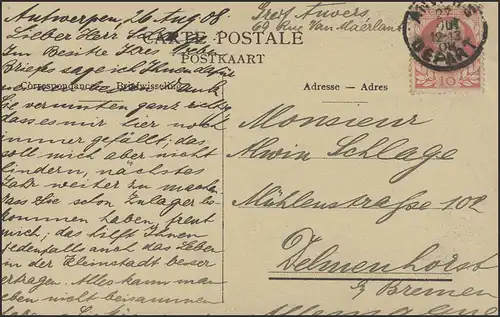 Antwerpen, 26 Aug 08.
Lieber Herr
Im Besitze Ihres
Briefes sage ich Ihnen dafür
Sie vermuten ganz richtig
dass es mir hier noch
immer gefällt; das
soll mich aber nicht
hindern, nächstes
Jahr weiter zu machen
dass Sie schon Zulager be-
kommen haben, freut
mich; das hilft Ihnen
jedenfalls auch das Leben
in der Kleinstadt besser
ertragen. Alles kann man
eben nicht beisammen
haben.
Anvers
69 Rue Van Maerlant
CARTE POSTALE
POSTKAART
Correspondance Briefwisseling
Adresse – Adres
DEPART
10
Monsieur
Alwin Schlage
Mühlenstrasse 102
Delmenhorst
b/ Bremen
Allemagne